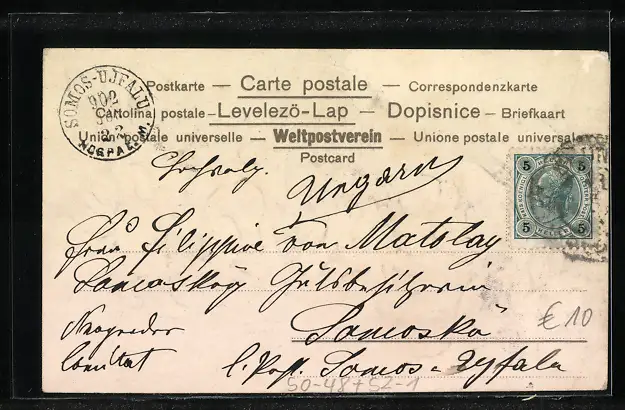 SOMOS-UJFALU
902
NOGRAD M.
Postkarte — Carte postale — Correspondenzkarte
Cartolina postale — Levelező-Lap — Dopisnice — Briefkaart
Union postale universelle — Weltpostverein — Unione postale universale
Postcard
Ungarn
5 5
5 HELLER 5
Frau Filippine von Matolay
Gutsbesitzerin
Somoskö
€ 10
Neograder
Comitat
l. Post Somos = Ujfalu
50-48+52-1